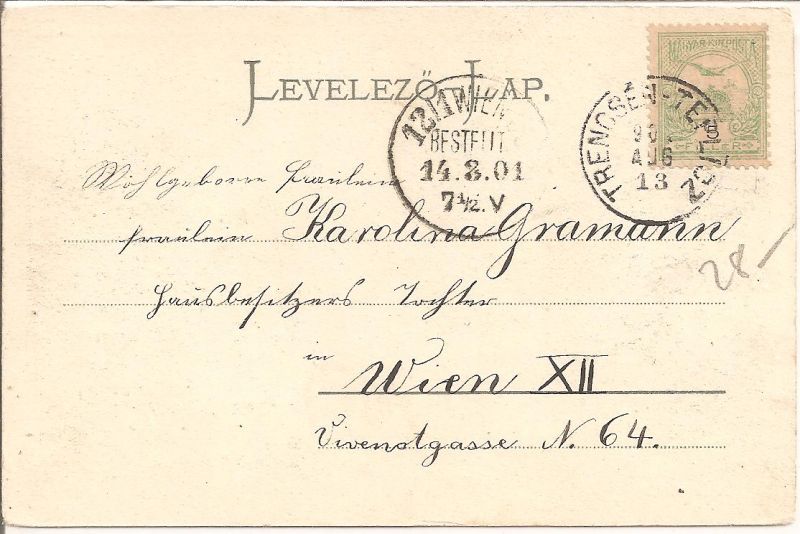 LEVELEZŐ LAP.
MAGYAR KIR. POSTA
FILLER
12/1 WIEN
BESTELLT
14.8.01
7½.V
TRENCSÉN-TEPLICZ
AUG
13
Wohlgeborne Fräulein
Fräulein Karolina Gramann
Hausbesitzers Tochter
28-
in
Wien XII
Vivenotgasse N. 64.